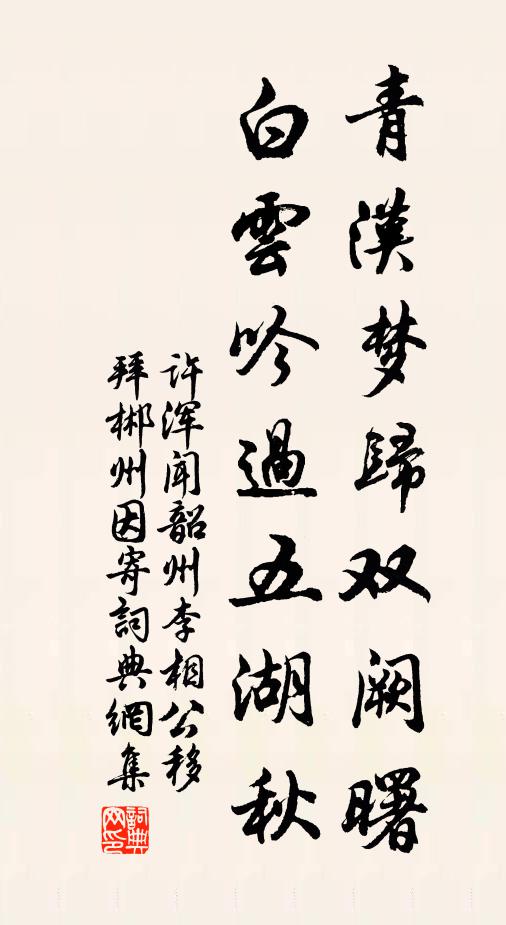 青漢梦歸双阙曙
白雲吟過五湖秋
许浑闻韶州李相公移
拜郴州因寄詞典網集
詞典网印